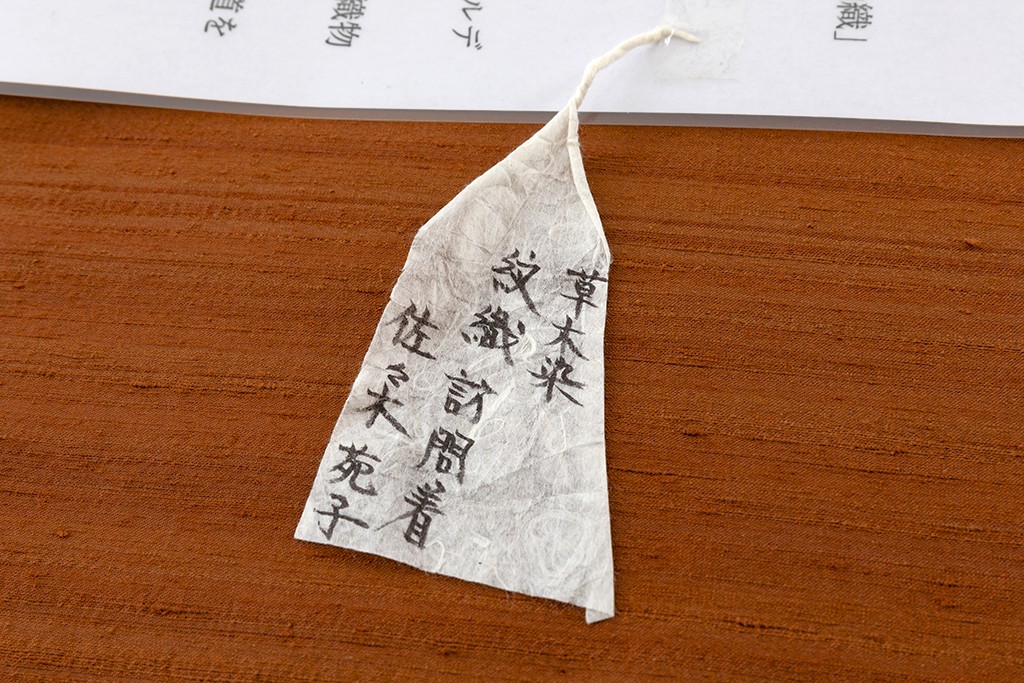 織」
ルデ
織物
道を
草木染
紋織訪問着
佐々木苑子